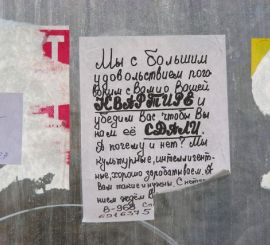 Мы с большим
удовольствием пого
ворим с Вами о Вашей
КВАРТИРЕ и
убедим Вас чтобы Вы
нам её СДАЛИ.
А почему и нет? Мы
культурные, интеллигент-
ные, хорошо зарабатываем. А
Вам такие и нужны. С нетер
ждём
8-968
Т